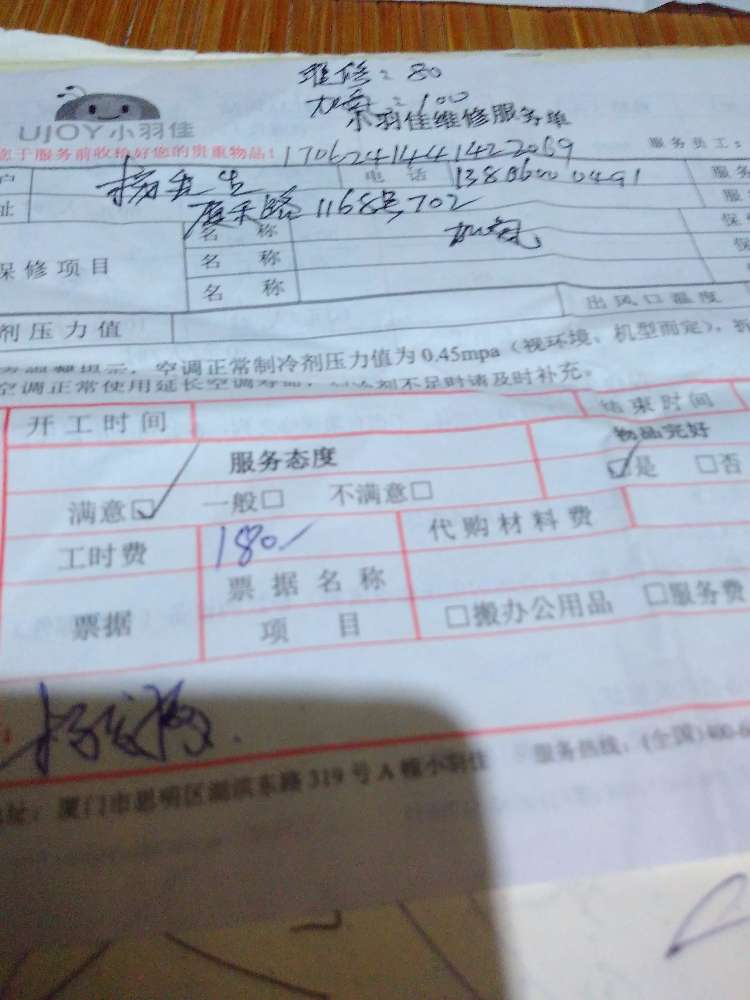 维修：80
加氟：100
UJOY小羽佳
小羽佳维修服务单
您于服务前收拾好您的贵重物品！
服务员工：
户 杨先生 电 话
服务
址 1168号702
服
名 称 加氟
保
保修项目 名 称
保
名 称
出风口温度
剂压力值
空调正常制冷剂压力值为 0.45mpa（视环境、机型而定），
空调正常使用延长空调寿命，剂不足时请及时补充。
开工时间
结束时间
服务态度
物品完好
满意☑ 一般□ 不满意□
☑是 □否
工时费 180
代购材料费
票据 票据名称
项 目 □搬办公用品 □服务费
址：厦门市思明区湖滨东路 319 号 A 幢小羽佳 服务热线：(全国)400-6